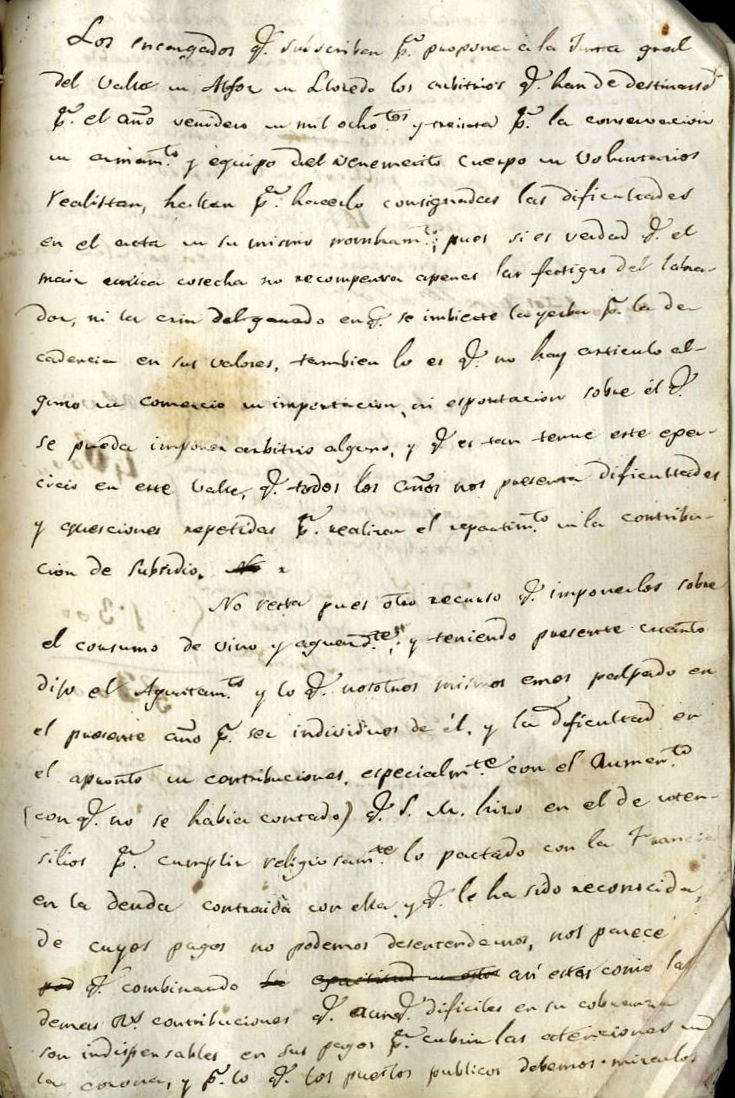 Los encargados q.e subscriben p.a proponer a la Junta gral
del Valle de Alfoz de Lloredo los arbitrios q.e han de destinarse
p.a el año venidero de mil ocho.tos y treinta p.a la conservacion
de armam.to y equipo del venemerito Cuerpo de Voluntarios
realistas, hallan p.a hacerlo consignadas las dificultades
en el acta de su mismo nombram.to; pues si es verdad q.e el
maiz unica cosecha no recompensa apenas las fatigas del labra-
dor, ni la cria del ganado en q.e se imbierte la yerba p.r la de-
cadencia en sus valores, tambien lo es q.e no hay articulo al-
guno de comercio de importacion, ni esportacion sobre él q.e
se pueda imponer arbitrio alguno, y q.e es tan tenue este eger-
cicio en este Valle, q.e todos los años nos presenta dificultades
y questiones repetidas p.a realizar el repartim.to de la contribu-
cion de subsidio.
No resta pues otro recurso q.e imponerlos sobre
el consumo de vino y aguard.te; y teniendo presente cuanto
dijo el Ayuntam.to y lo q.e nosotros mismos emos palpado en
el presente año p.r ser individuos de él, y la dificultad en
el apronto de contribuciones, especialm.te con el Aumen.to
(con q.e no se habia contado) q.e S. M. hizo en el de uten-
silios p.a cumplir religiosam.te lo pactado con la Francia
en la deuda contraida con ella y q.e le ha sido reconocida,
de cuyos pagos no podemos desentendernos, nos parece
q.e combinando asi estas como las
demas contribuciones q.e aunq.e dificiles en su cobranza
son indispensables en sus pagos p.a cubrir las atenciones de
la corona, y p.r lo q.e los pueblos publicos debemos mirarlos